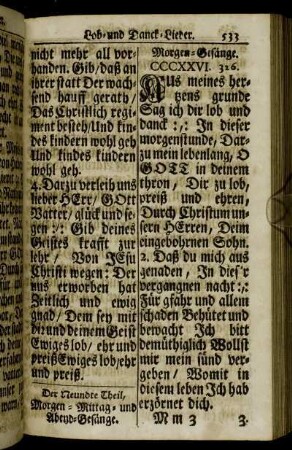 Lob-und Danck-Lieder. 533
nicht mehr all vor-
handen. Gib/ daß an
ihrer statt Der wach-
send hauff gerath/
Das Christlich regi-
ment besteh/ Und kin-
des kindern wohl geh
Und kindes kindern
wohl geh.
4. Darzu verleih uns
lieber HErr/ GOtt
Vatter/ glück und se-
gen :/: Gib deines
Geistes krafft zur
lehr/ Von JEsu
Christi wegen: Der
uns erworben hat
Zeitlich und ewig
gnad/ Dem sey mit
dir und deinem Geist
Ewiges lob/ ehr und
preiß Ewiges lob/ehr
und preiß.
Der Neundte Theil,
Morgen-Mittag-und
Abend-Gesänge.
Morgen-Gesänge.
CCCXXVI. 326.
AUs meines her-
tzens grunde
Sag ich dir lob und
danck :/: In dieser
morgenstunde, Dar-
zu mein lebenlang, O
GOTT in deinem
thron, Dir zu lob,
preiß und ehren,
Durch Christum un-
sern HErren, Dein
eingebohrnen Sohn.
2. Daß du mich aus
genaden, In dies'r
vergangnen nacht :/:
Für gfahr und allem
schaden Behütet und
bewacht Ich bitt
demüthiglich Wollst
mir mein sünd ver-
geben/ Womit in
diesem leben Ich hab
erzörnet dich.
M m 3 3.